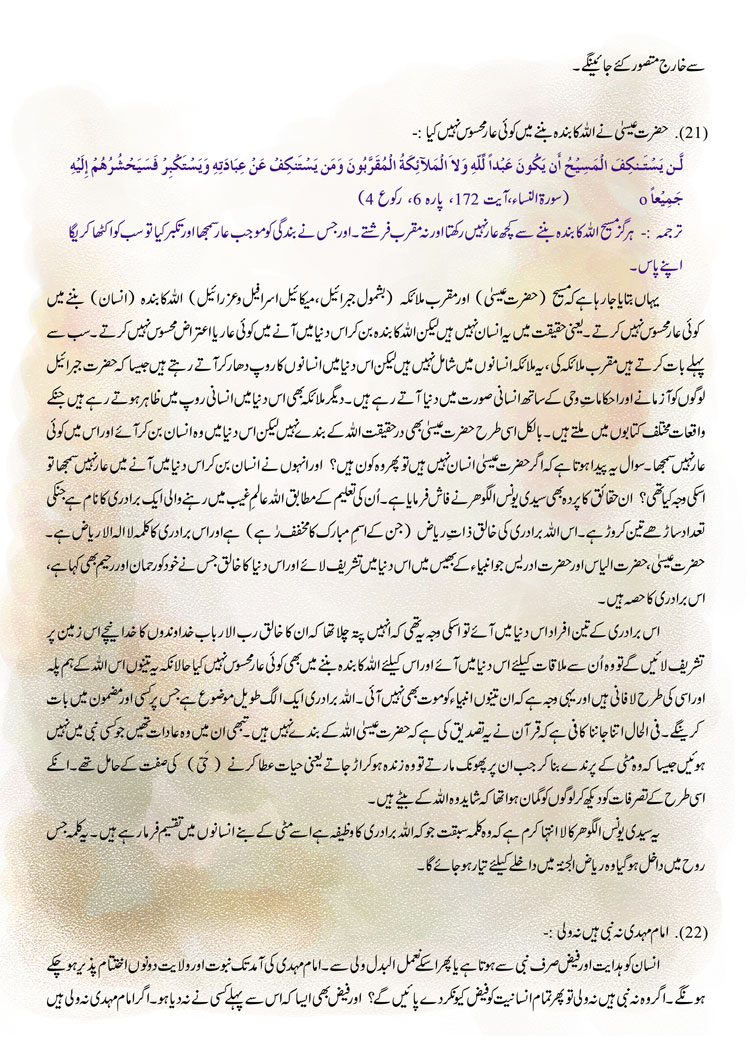 سے خارج متصور کئے جائینگے ۔
(21). حضرت عیسیٰ نے اللہ کا بندہ بننے میں کوئی عار محسوس نہیں کیا :-
لَّـن يَسْتَـنكِفَ الْـمَسِيْحُ أَن يَكُونَ عَبْداً لِّلّٰهِ وَلاَ الْـمَلآئِكَةُ الْـمُقَرَّبُونَ وَمَن يَسْتَنكِفْ عَنْ عِبَادَتِهِ وَيَسْتَكْبِرْ فَسَيَحْشُرُهُمْ إِلَيْهِ
جَمِيْعاً o (سورۃ النساء، آیت 172، پارہ 6، رکوع 4)
ترجمہ :- ہرگز مسیح اللہ کا بندہ بننے سے کچھ عار نہیں رکھتا اور نہ مقرب فرشتے ۔ اور جس نے بندگی کو موجب عار سمجھا اور تکبر کیا تو سب کو اکٹھا کریگا
اپنے پاس ۔
یہاں بتایا جا رہا ہے کہ مسیح (حضرت عیسیٰ) اور مقرب ملائکہ (بشمول جبرائیل، میکائیل اسرافیل و عزرائیل) اللہ کا بندہ (انسان) بننے میں
کوئی عار محسوس نہیں کرتے ۔ یعنی حقیقت میں یہ انسان نہیں ہیں لیکن اللہ کا بندہ بن کر اس دنیا میں آنے میں کوئی عار یا اعتراض محسوس نہیں کرتے ۔ سب سے
پہلے بات کرتے ہیں مقرب ملائکہ کی ، یہ ملائکہ انسانوں میں شامل نہیں ہیں لیکن اس دنیا میں انسانوں کا روپ دھار کر آتے رہتے ہیں جیسا کہ حضرت جبرائیل
لوگوں کو آزمانے اور احکاماتِ وحی کے ساتھ انسانی صورت میں دنیا آتے رہے ہیں ۔ دیگر ملائکہ بھی اس دنیا میں انسانی روپ میں ظاہر ہوتے رہے ہیں جنکے
واقعات مختلف کتابوں میں ملتے ہیں ۔ بالکل اسی طرح حضرت عیسیٰ بھی در حقیقت اللہ کے بندے نہیں لیکن اس دنیا میں وہ انسان بن کر آئے اور اس میں کوئی
عار نہیں سمجھا ۔ سوال یہ پیدا ہوتا ہے کہ اگر حضرت عیسیٰ انسان نہیں ہیں تو پھر وہ کون ہیں؟ اور انہوں نے انسان بن کر اس دنیا میں آنے میں عار نہیں سمجھا تو
اسکی وجہ کیا تھی؟ ان حقائق کا پردہ بھی سیدی یونس الگوھر نے فاش فرمایا ہے ۔ اُن کی تعلیم کے مطابق اللہ عالمِ غیب میں رہنے والی ایک برادری کا نام ہے جنکی
تعداد ساڑھے تین کروڑ ہے ۔ اس اللہ برادری کی خالق ذاتِ ریاض (جن کے اسمِ مبارک کا مخفف رٰ ہے) ہے اور اس برادری کا کلمہ لا الہ الا ریاض ہے ۔
حضرت عیسیٰ ، حضرت الیاس اور حضرت ادریس جو انبیاء کے بھیس میں اس دنیا میں تشریف لائے اور اس دنیا کا خالق جس نے خود کو رحمان اور رحیم بھی کہا ہے ،
اس برادری کا حصہ ہیں ۔
اس برادری کے تین افراد اس دنیا میں آئے تو اسکی وجہ یہ تھی کہ انہیں پتہ چلا تھا کہ ان کا خالق رب الارباب خداوندوں کا خدا نیچے اس زمین پر
تشریف لائیں گے تو وہ اُن سے ملاقات کیلئے اس دنیا میں آئے اور اس کیلئے اللہ کا بندہ بننے میں بھی کوئی عار محسوس نہیں کیا حالانکہ یہ تینوں اس اللہ کے ہم پلہ
اور اسی کی طرح لافانی ہیں اور یہی وجہ ہے کہ ان تینوں انبیاء کو موت بھی نہیں آئی ۔ اللہ برادری ایک الگ طویل موضوع ہے جس پر کسی اور مضمون میں بات
کرینگے ۔ فی الحال اتنا جاننا کافی ہے کہ قرآن نے یہ تصدیق کی ہے کہ حضرت عیسیٰ اللہ کے بندے نہیں ہیں ۔ تبھی ان میں وہ عادات تھیں جو کسی نبی میں نہیں
ہوئیں جیسا کہ وہ مٹی کے پرندے بنا کر جب ان پر پھونک مارتے تو وہ زندہ ہو کر اڑ جاتے یعنی حیات عطا کرنے (حَیّ) کی صفت کے حامل تھے ۔ انکے
اسی طرح کے تصرفات کو دیکھ کر لوگوں کو گمان ہوا تھا کہ شاید وہ اللہ کے بیٹے ہیں ۔
یہ سیدی یونس الگوھر کا لا انتہا کرم ہے کہ وہ کلمہ سبقت جو کہ اللہ برادری کا وظیفہ ہے اسے مٹی کے بنے انسانوں میں تقسیم فرما رہے ہیں ۔ یہ کلمہ جس
روح میں داخل ہو گیا وہ ریاض الجنۃ میں داخلے کیلئے تیار ہو جائے گا ۔
(22). امام مہدی نہ نبی ہیں نہ ولی :-
انسان کو ہدایت اور فیض صرف نبی سے ہوتا ہے یا پھر اسکے نعم البدل ولی سے ۔ امام مہدی کی آمد تک نبوت اور ولایت دونوں اختتام پذیر ہو چکے
ہونگے ۔ اگر وہ نہ نبی ہیں نہ ولی تو پھر تمام انسانیت کو فیض کیونکر دے پائیں گے؟ اور فیض بھی ایسا کہ اس سے پہلے کسی نے نہ دیا ہو ۔ اگر امام مہدی نہ ولی ہیں